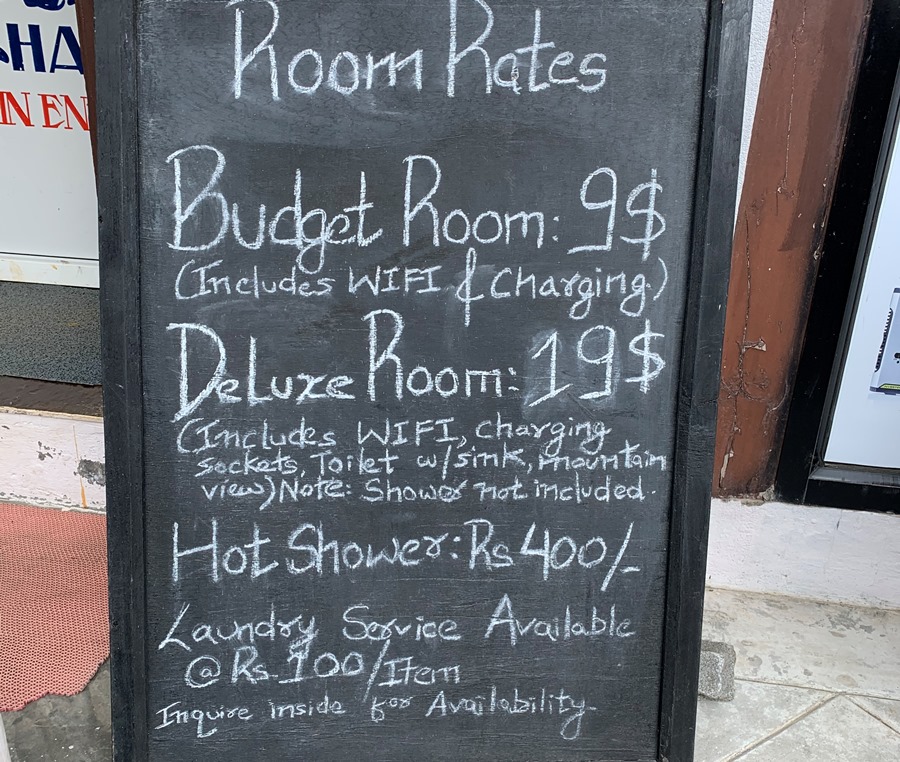 HA
IN EN
Room Rates
Budget Room: 9$
(Includes WIFI & Charging)
Deluxe Room: 19$
(Includes WIFI, charging
sockets, Toilet w/sink, mountain
view) Note: Shower not included.
Hot Shower: Rs 400/-
Laundry Service Available
@ Rs. 100/Item
Inquire inside for Availability-